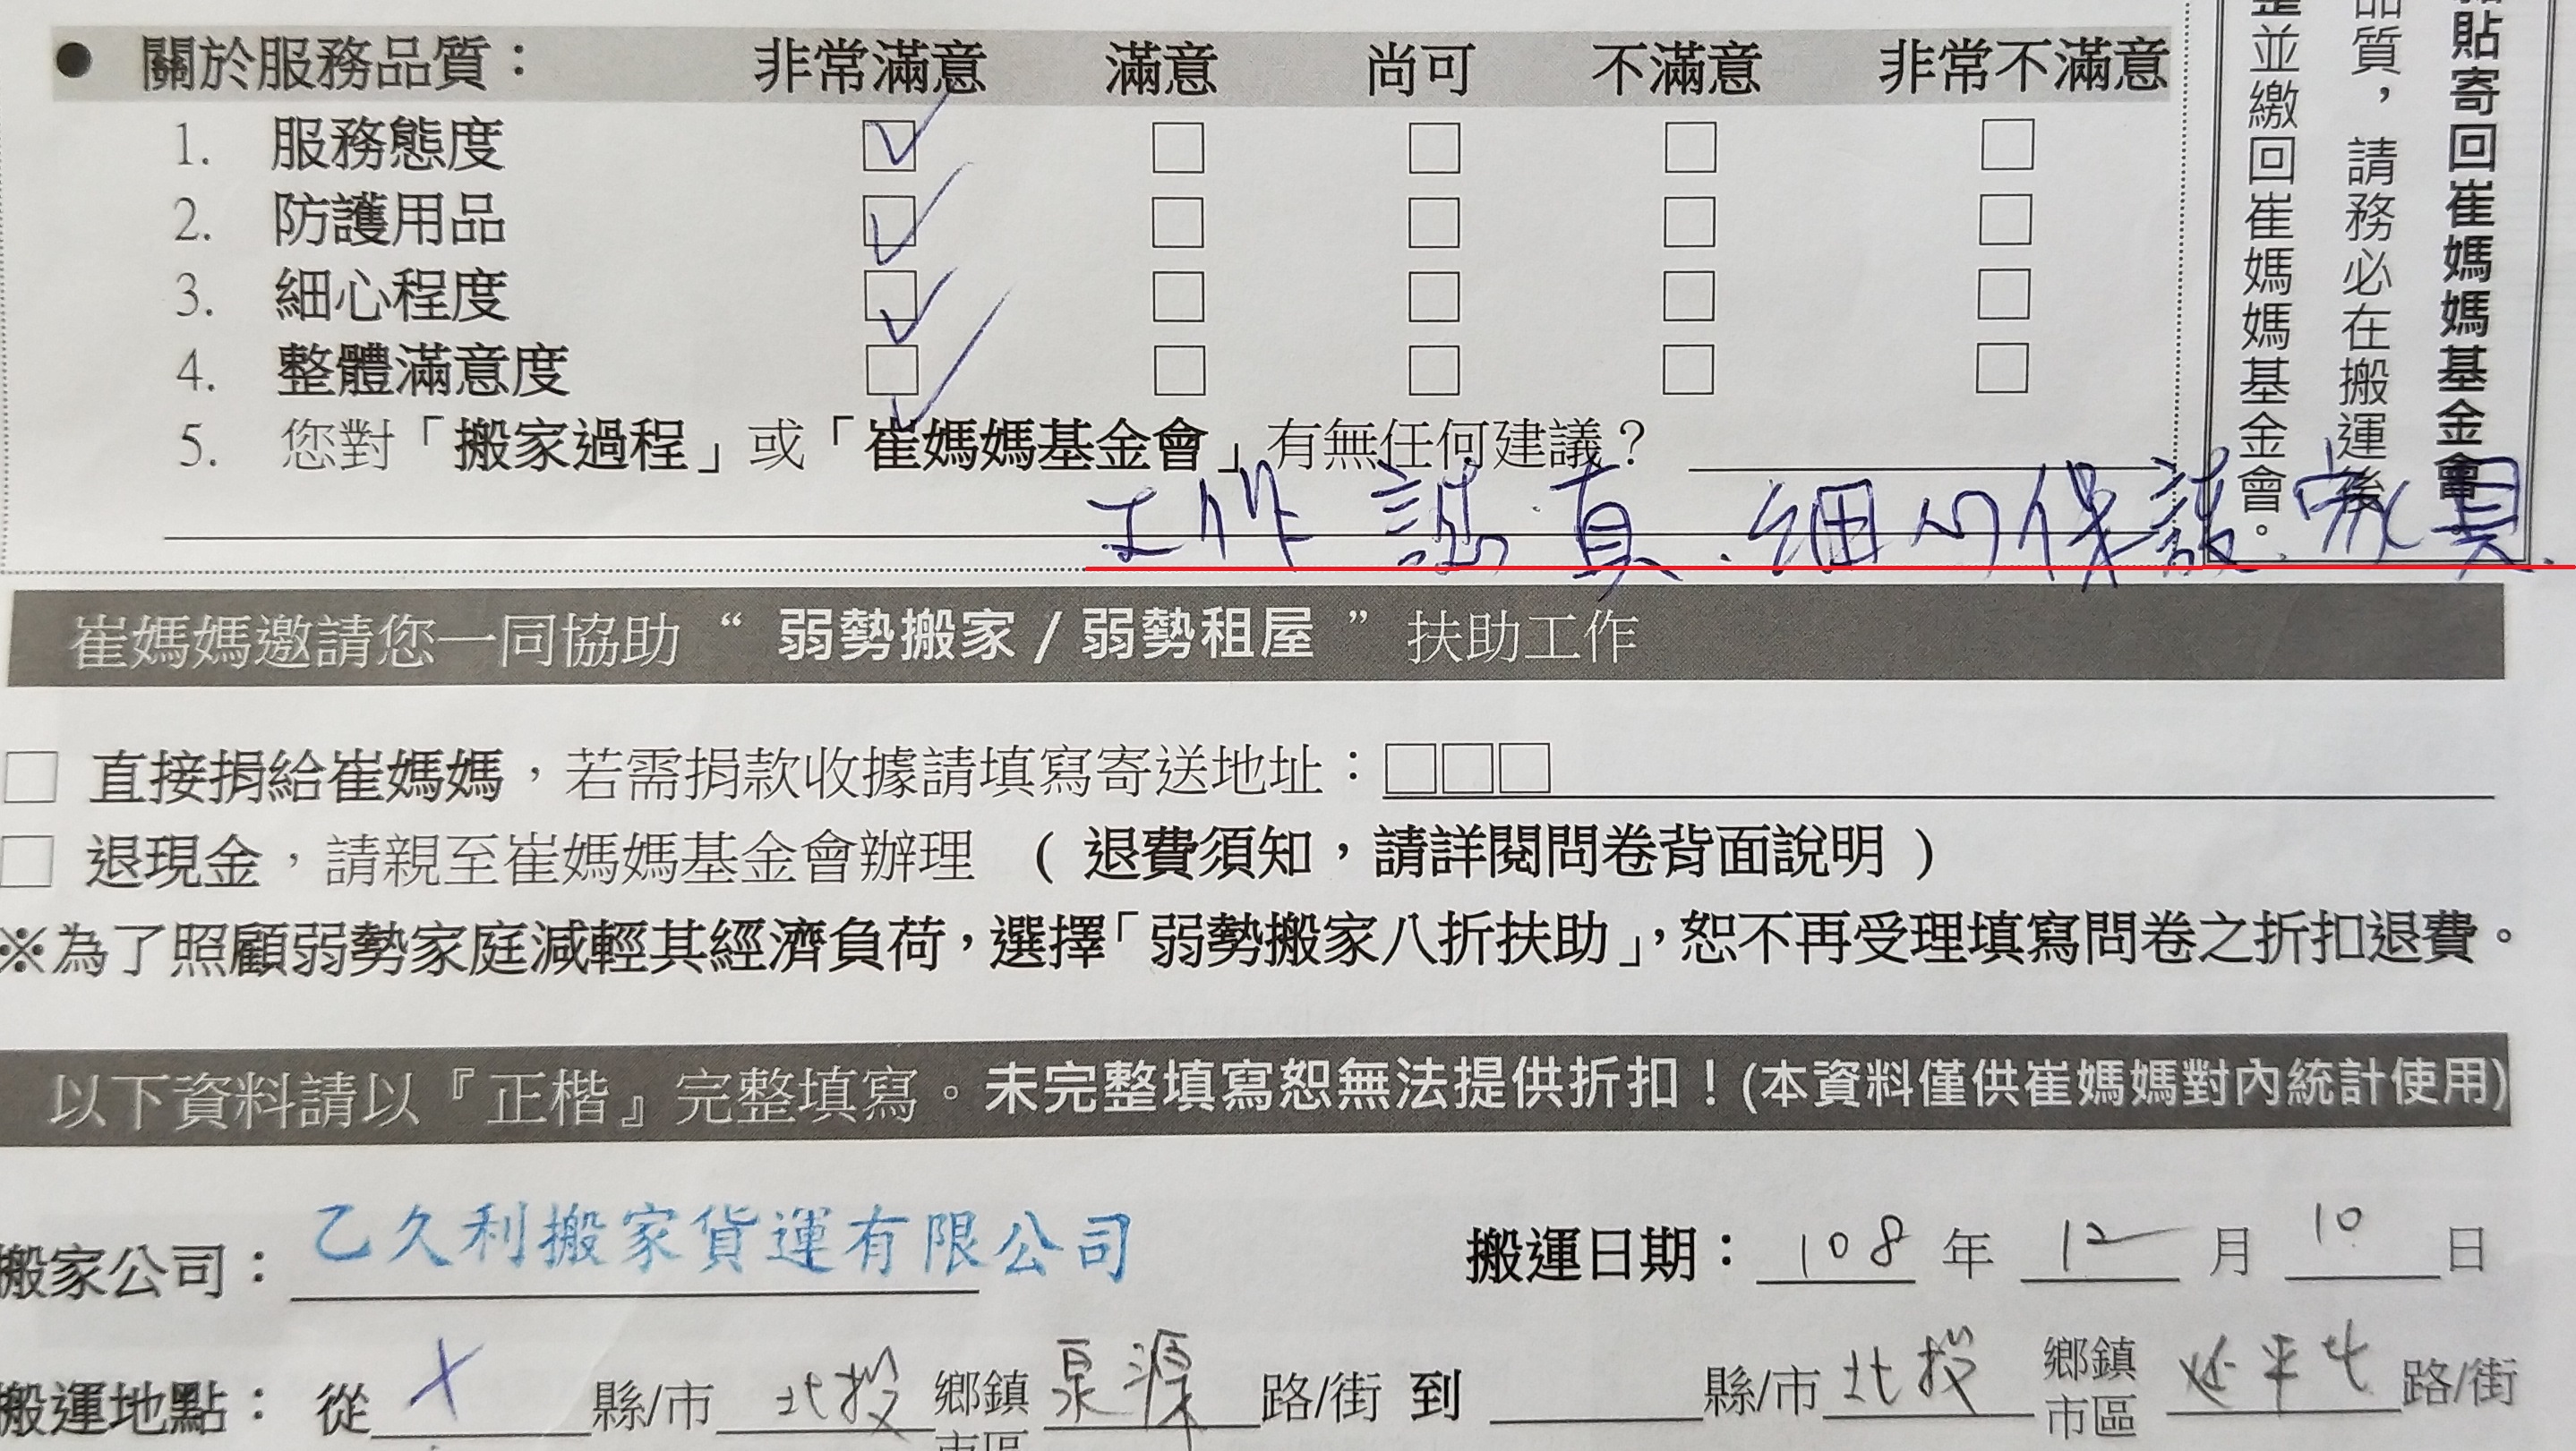 ● 關於服務品質： 非常滿意 滿意 尚可 不滿意 非常不滿意
1. 服務態度 ☑ □ □ □ □
2. 防護用品 ☑ □ □ □ □
3. 細心程度 ☑ □ □ □ □
4. 整體滿意度 ☑ □ □ □ □
5. 您對「搬家過程」或「崔媽媽基金會」有無任何建議？
工作認真.細心保護家具.
貼寄回崔媽媽基金會
品質，請務必在搬運後
整並繳回崔媽媽基金會。
崔媽媽邀請您一同協助“弱勢搬家/弱勢租屋”扶助工作
□ 直接捐給崔媽媽，若需捐款收據請填寫寄送地址：□□□
□ 退現金，請親至崔媽媽基金會辦理 (退費須知，請詳閱問卷背面說明)
※為了照顧弱勢家庭減輕其經濟負荷，選擇「弱勢搬家八折扶助」，恕不再受理填寫問卷之折扣退費。
以下資料請以『正楷』完整填寫。未完整填寫恕無法提供折扣！(本資料僅供崔媽媽對內統計使用)
搬家公司：乙久利搬家貨運有限公司 搬運日期：108年12月10日
搬運地點：從 縣/市 北投 鄉鎮市區 泉源 路/街 到 縣/市 北投 鄉鎮市區 延平北 路/街